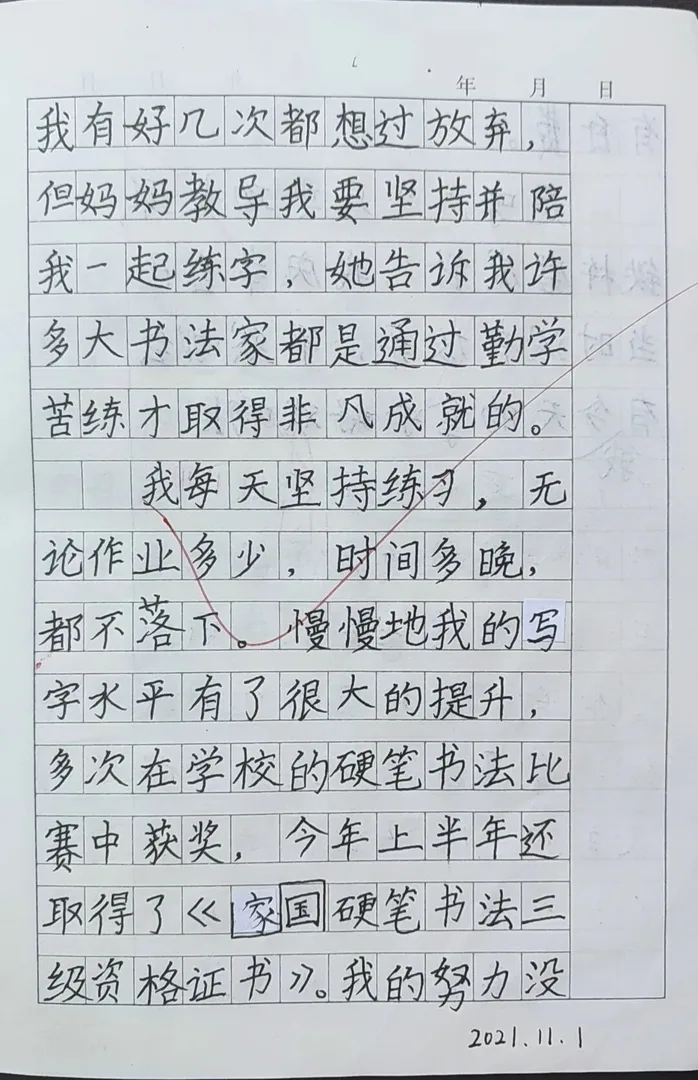 年 月 日
我有好几次都想过放弃，
但妈妈教导我要坚持并陪
我一起练字，她告诉我许
多大书法家都是通过勤学
苦练才取得非凡成就的。
我每天坚持练习，无
论作业多少，时间多晚，
都不落下。慢慢地我的写
字水平有了很大的提升，
多次在学校的硬笔书法比
赛中获奖，今年上半年还
取得了《家国硬笔书法三
级资格证书》。我的努力没
2021.11.1